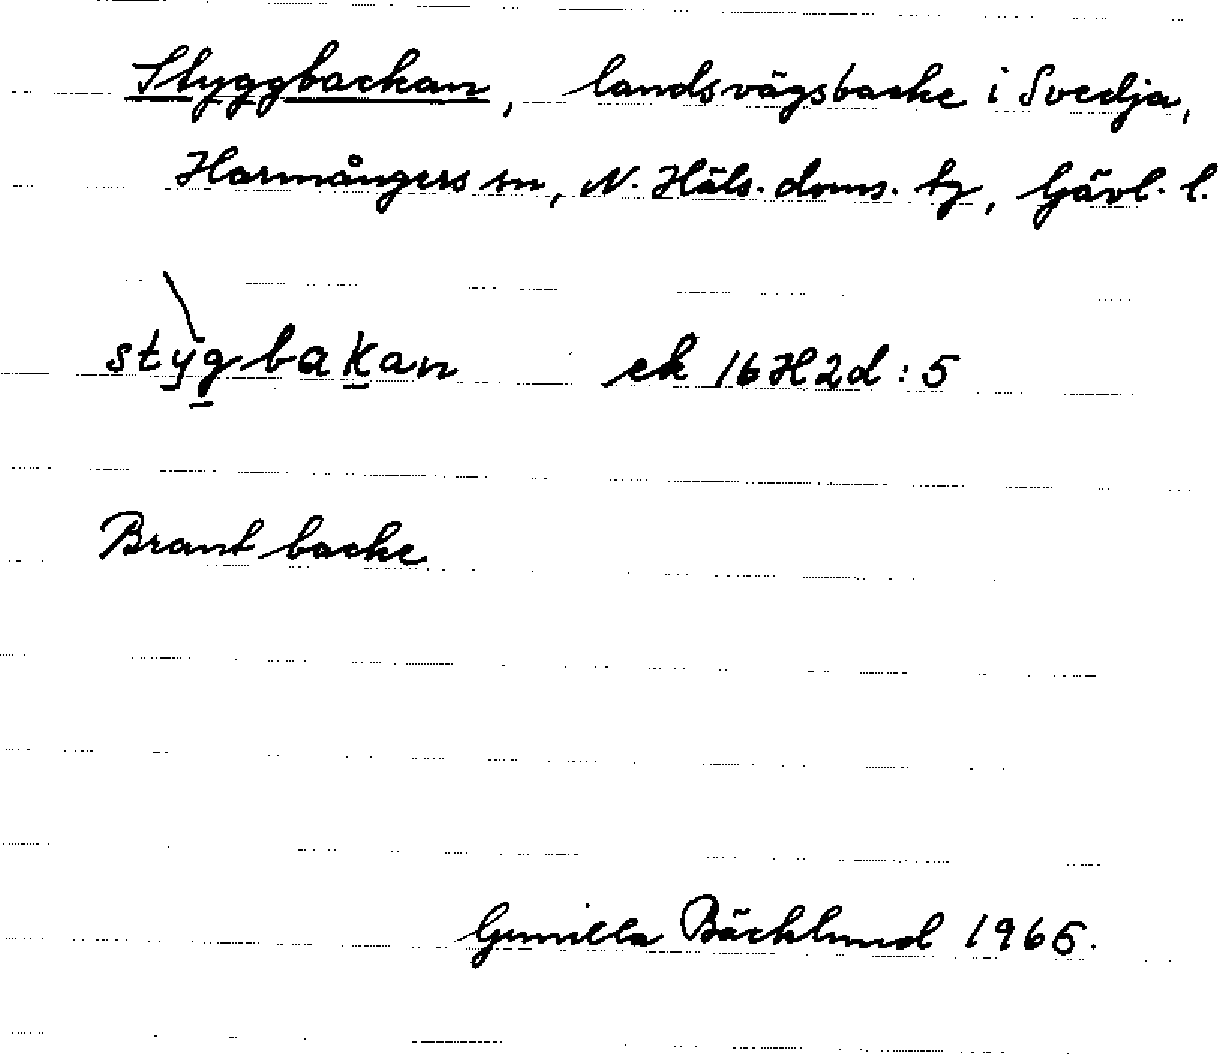 Styggbackan, landsvägsbacke i Svedja,
Harmångers sn, N. Häls. doms. tg, Gävl. l.
stygbakan ek 16H2d:5
Brant backe
Gunilla Bäcklund 1965.